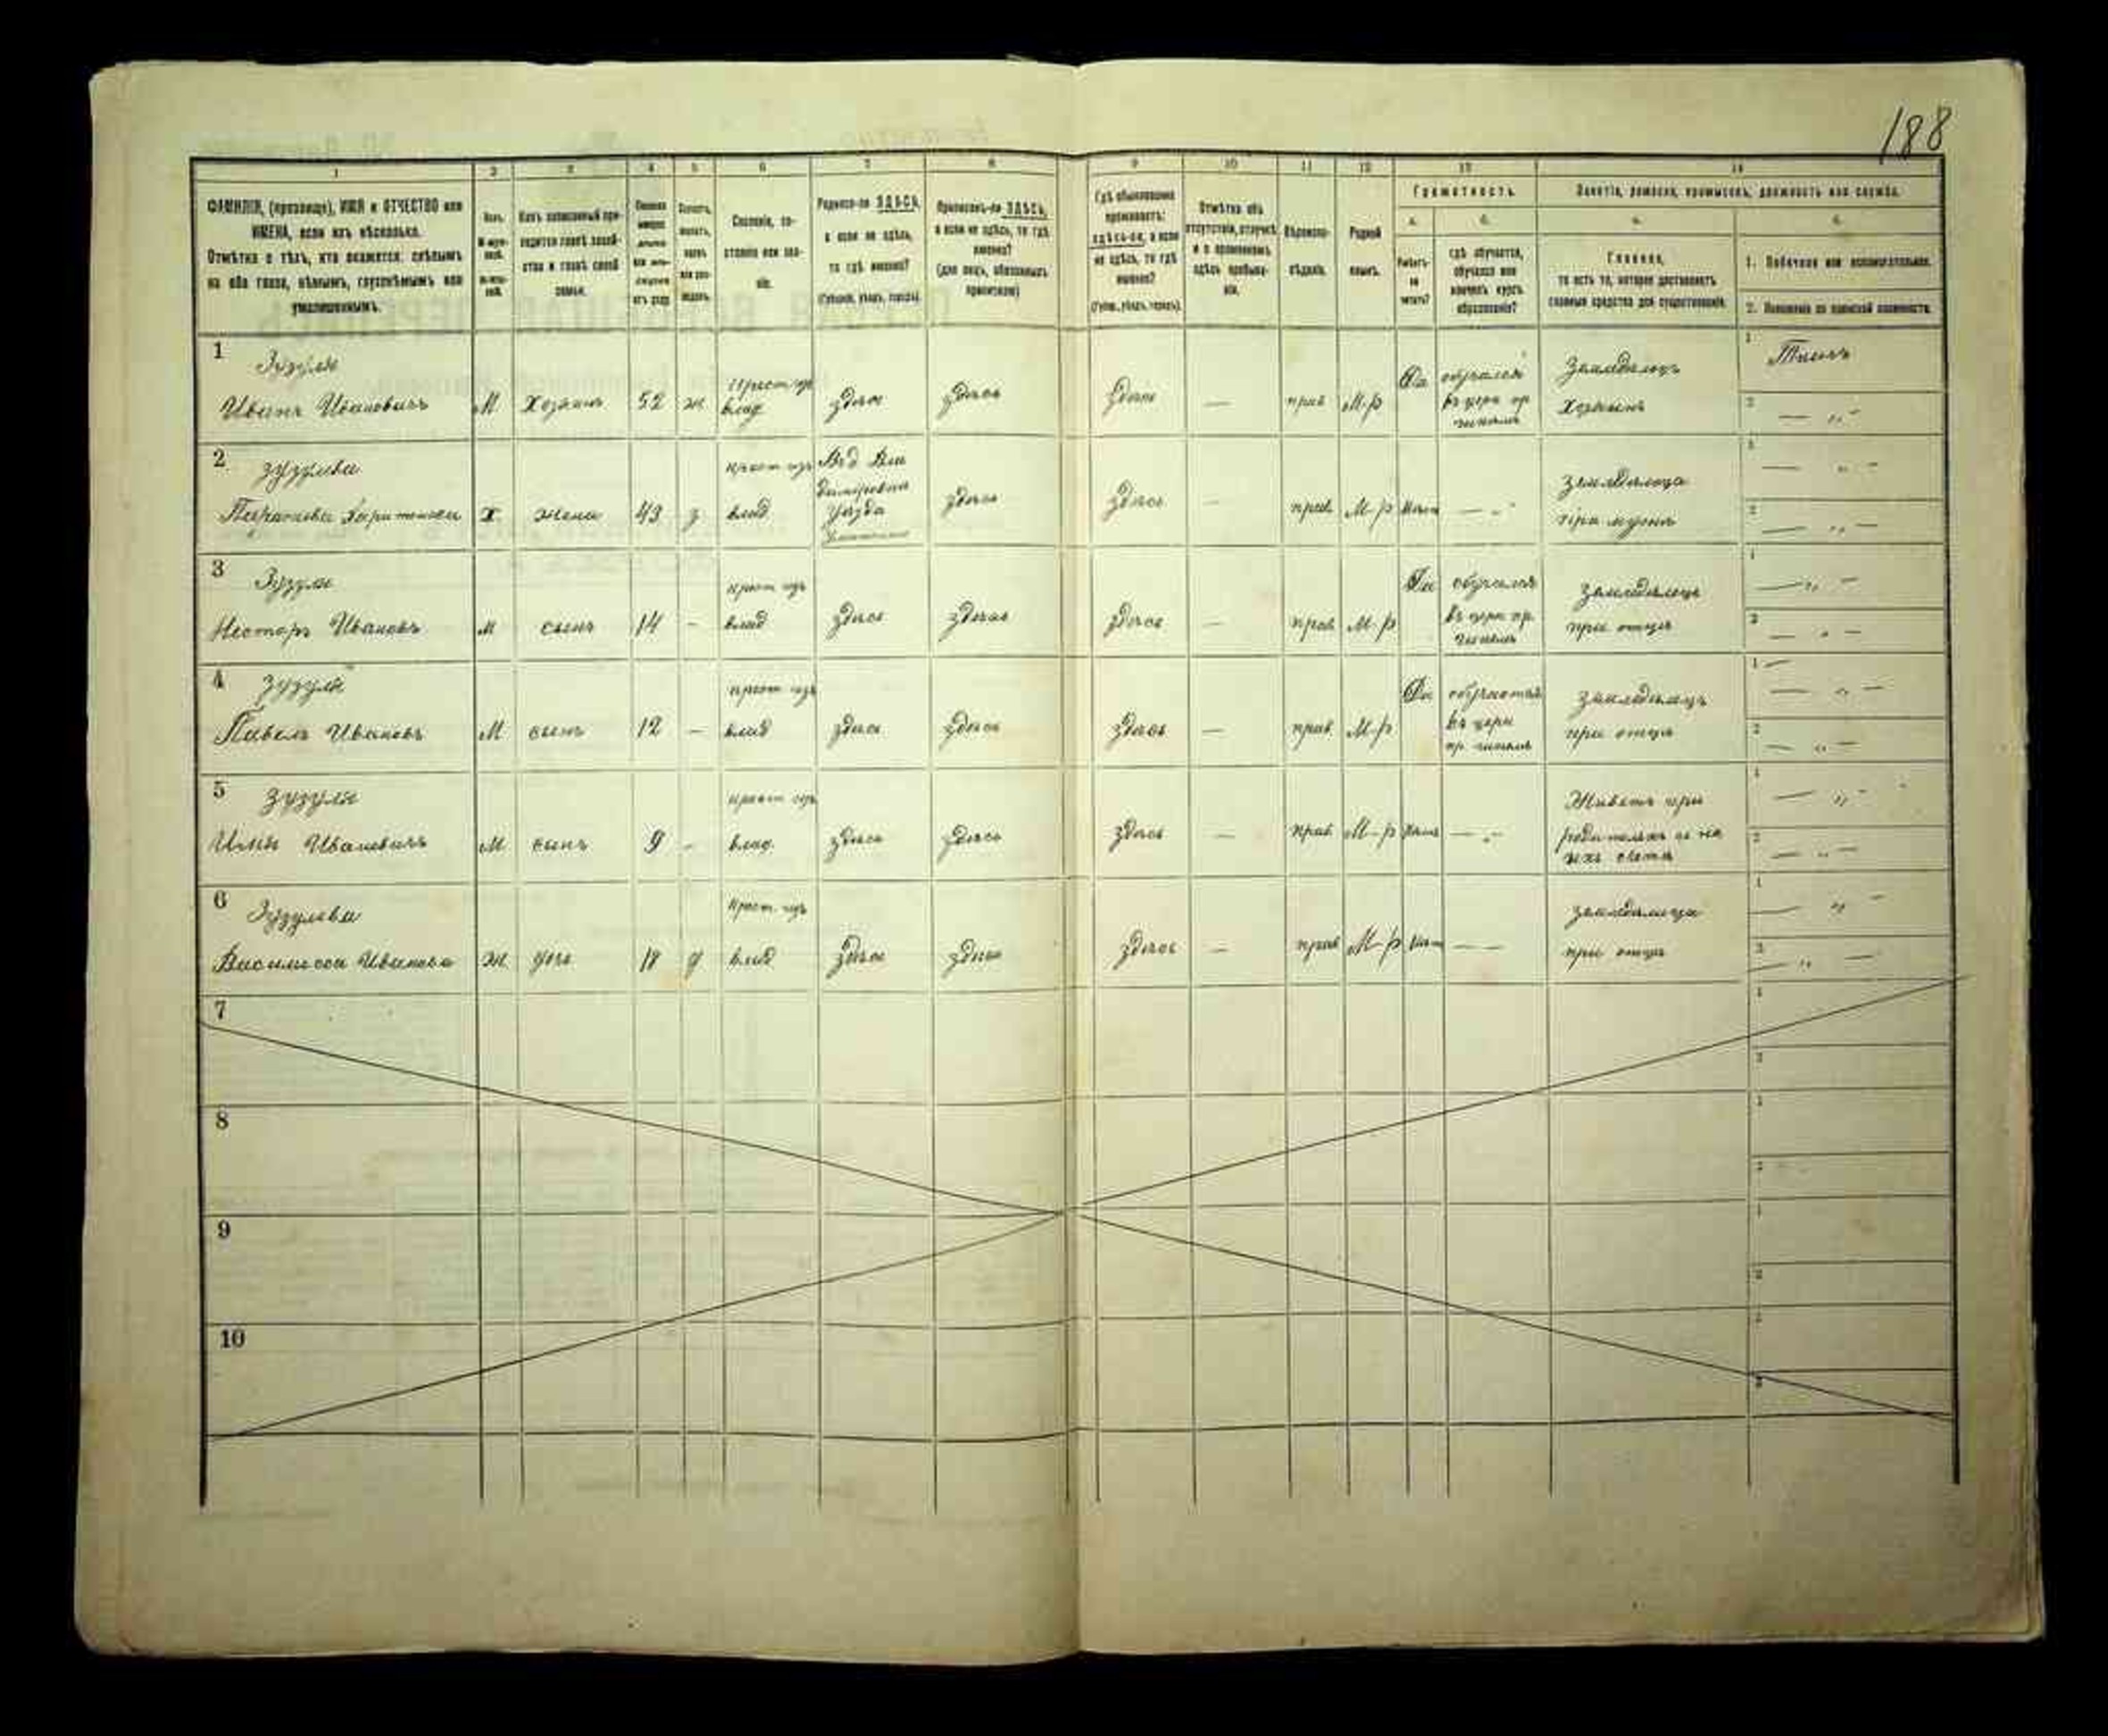 188
1 2 3 4 5 6 7 8 9 10 11 12 13 14
ФАМИЛІЯ, (прозвище), ИМЯ и ОТЧЕСТВО или
ИМЕНА, если ихъ нѣсколько.
Отмѣтка о тѣхъ, кто окажется: слѣпымъ
на оба глаза, нѣмымъ, глухонѣмымъ или
умалишеннымъ.
Полъ.
Какъ записанный при-
ходится главѣ хозяй-
ства и главѣ своей
семьи.
Сословіе, со-
стояніе или зва-
ніе.
Родился-ли ЗДѢСЬ,
а если не здѣсь,
то гдѣ именно?
(Губернія, уѣздъ, городъ).
Приписанъ-ли ЗДѢСЬ,
а если не здѣсь, то гдѣ
именно?
(для лицъ, обязанныхъ
припиской)
Гдѣ обыкновенно
проживаетъ:
здѣсь-ли, а если
не здѣсь, то гдѣ
именно?
(Губерн., уѣздъ, городъ).
Отмѣтка объ
отсутствіи, отлучкѣ
и о временномъ
здѣсь пребыва-
ніи.
Вѣроиспо-
вѣданіе.
Родной
языкъ.
Грамотность.
а.
Умѣетъ-
ли
читать?
б.
гдѣ обучается,
обучался или
кончилъ курсъ
образованія?
Занятіе, ремесло, промыселъ, должность или служба.
а.
Главное,
то есть то, которое доставляетъ
главныя средства для существованія.
б.
1. Побочное или вспомогательное.
2. Положеніе по воинской повинности.
1 Зузуля
Иванъ Ивановичъ М Хозяинъ 52 ж Крест изъ влад здѣсь здѣсь здѣсь — прав М-р Да обучался въ церк пр. школѣ Земледѣлецъ Хозяинъ 1 2 — „ -
2 Зузулева
Парасковія Харитонова Ж жена 43 з крест изъ влад уѣзда здѣсь здѣсь — прав М-р — „ - земледѣлица при мужѣ 1 — „ - 2 — „ -
3 Зузуля
Несторъ Ивановъ М сынъ 14 - крест изъ влад здѣсь здѣсь здѣсь — прав М-р Да обучался въ церк пр. школѣ земледѣлецъ при отцѣ 1 — „ - 2 — „ -
4 Зузуля
Павелъ Ивановъ М сынъ 12 - крест изъ влад здѣсь здѣсь здѣсь — прав М-р Да обучается въ церк пр. школѣ земледѣлецъ при отцѣ 1 — „ - 2 — „ -
5 Зузуля
Илья Ивановичъ М сынъ 9 - крест изъ влад здѣсь здѣсь здѣсь — прав М-р — „ - Живетъ при родителяхъ и на ихъ счетъ 1 — „ - 2 — „ -
6 Зузулева
Василисса Иванова Ж дочь 18 д Крест. изъ влад здѣсь здѣсь здѣсь — прав М-р — земледѣлица при отцѣ 1 — „ - 2 — „ -
7 1 2
8 1 2
9 1 2
10 1 2